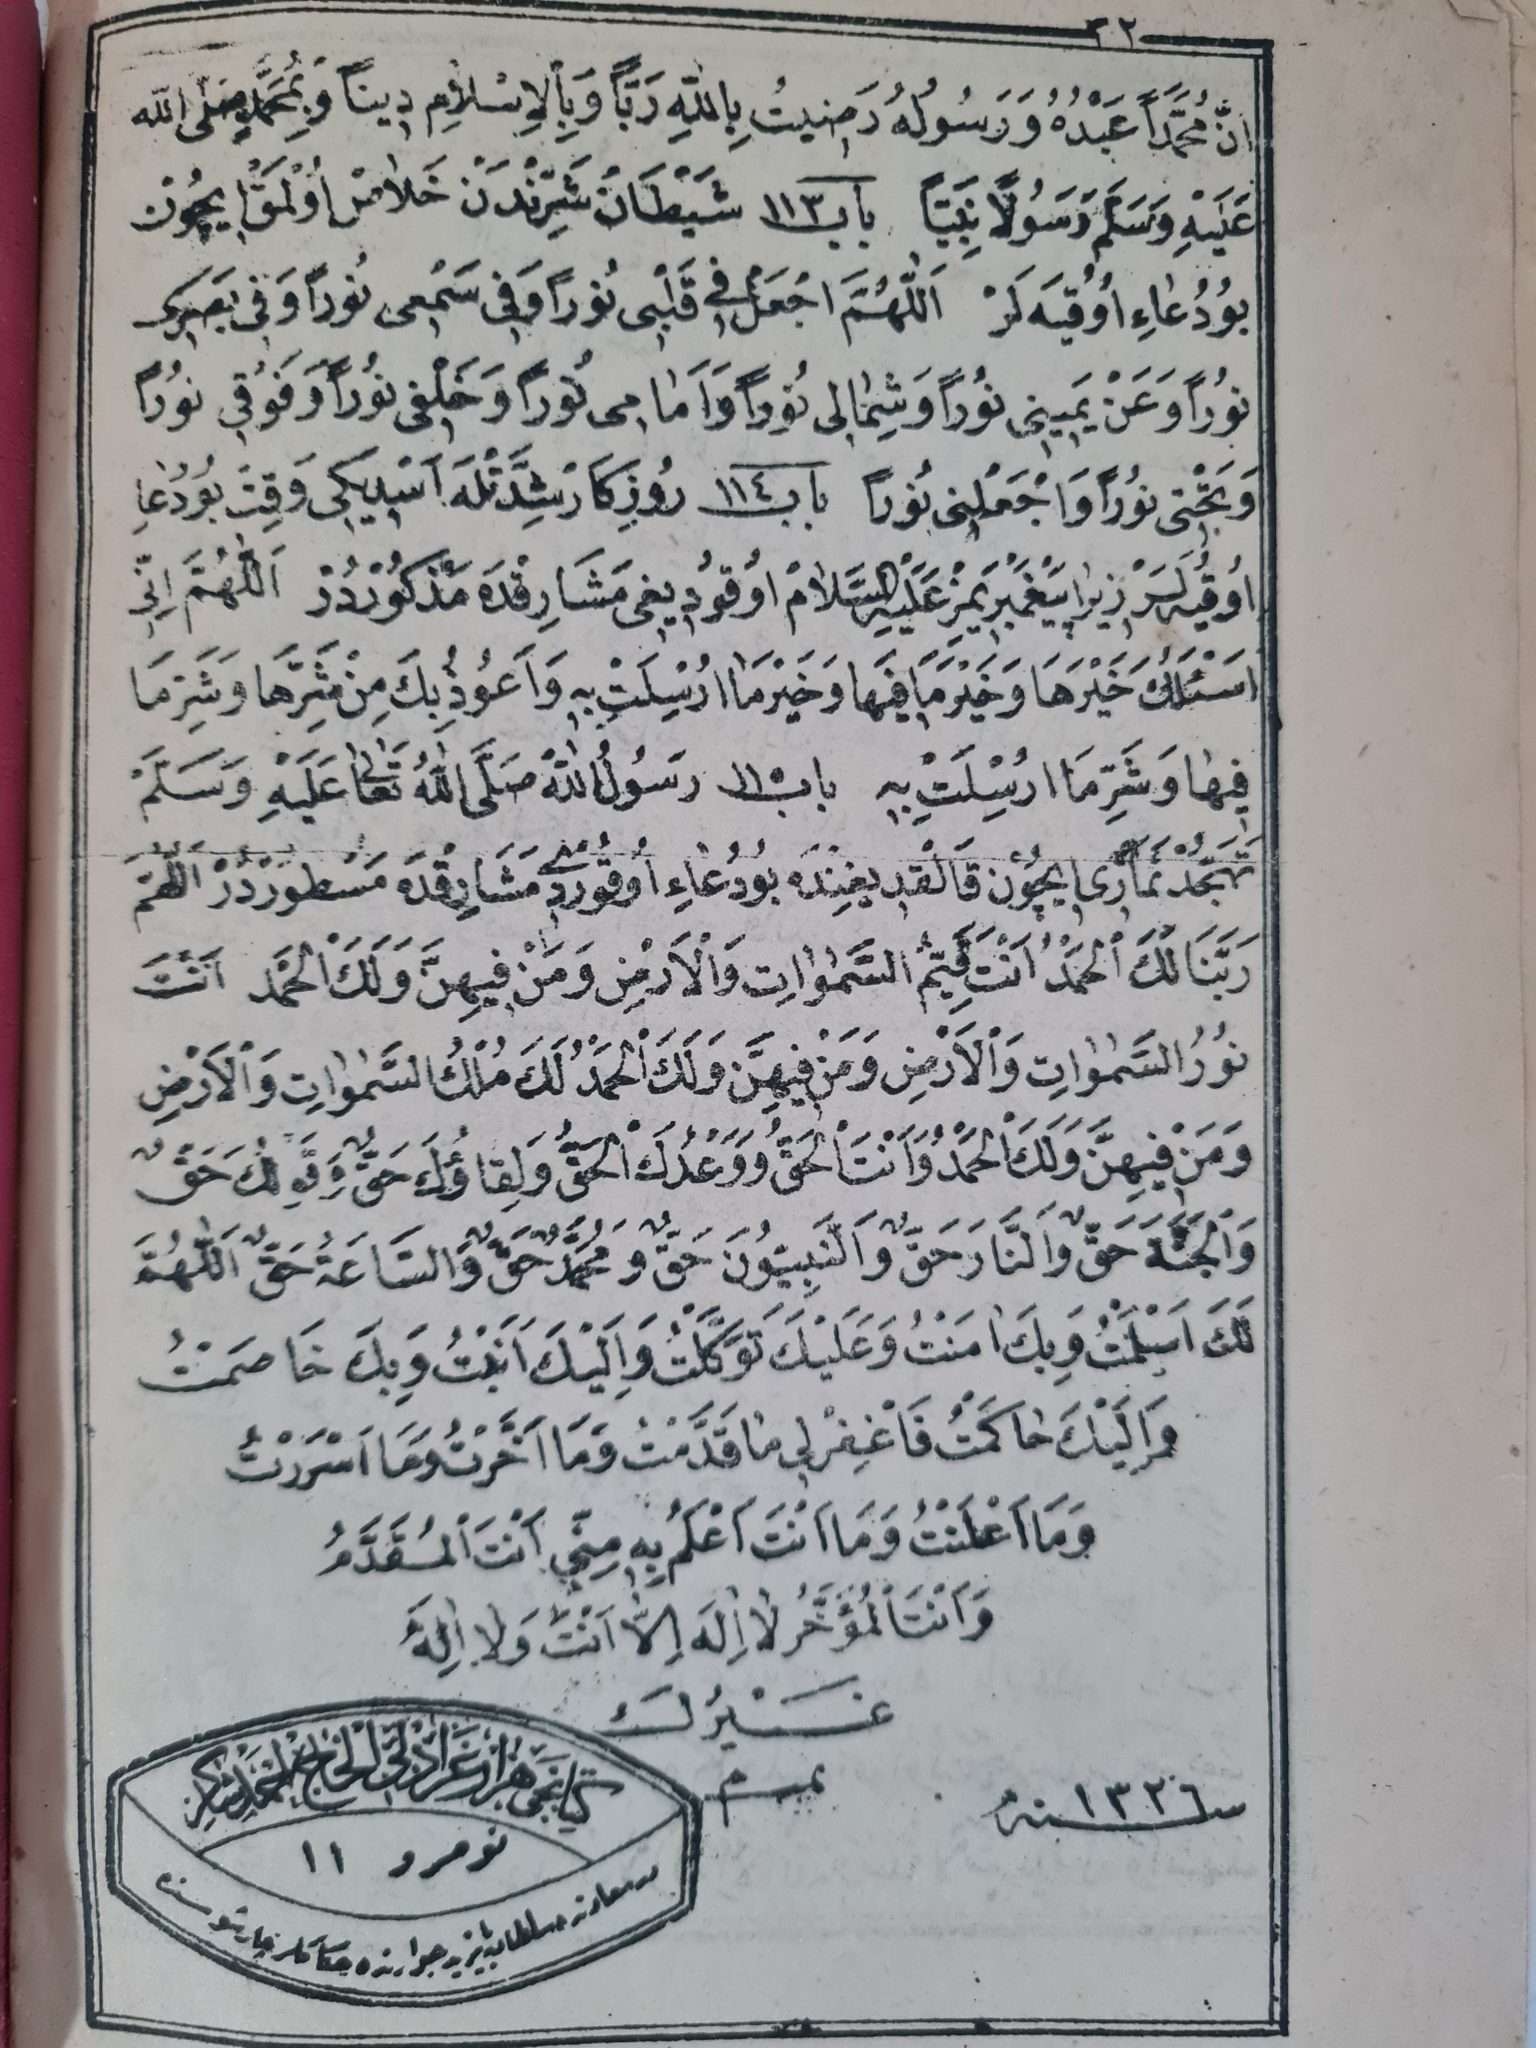 ٣٢
اَنَّ مُحَمَّدًا عَبْدُهُ وَرَسُولُهُ رَضِيتُ بِاللّٰهِ رَبًّا وَبِالْاِسْلَامِ دِينًا وَبِمُحَمَّدٍ صَلَّى اللّٰه
عَلَيْهِ وَسَلَّمَ رَسُولًا نَبِيًّا باب ١١٣ شَيْطَانْ شَرِّنْدَنْ خَلَاصْ اُولْمَقْ اِيچُونْ
بُو دُعَاءِ اُوقِيَه لَرْ اَللّٰهُمَّ اجْعَلْ فِي قَلْبِي نُورًا وَفِي سَمْعِي نُورًا وَفِي بَصَرِي
نُورًا وَعَنْ يَمِينِي نُورًا وَشِمَالِي نُورًا وَاَمَامِي نُورًا وَخَلْفِي نُورًا وَفَوْقِي نُورًا
وَتَحْتِي نُورًا وَاجْعَلْنِي نُورًا باب ١١٤ رُوزِكَارْ شِدَّتْلَه اَسْدِيكِي وَقِتْ بُو دُعَاءِ
اُوقِيَه لَرْ زِيرَا پَيْغَمْبَرِيمِزْ عَلَيْهِ السَّلَامْ اُوقُودِيغِي مَشَارِقْدَه مَذْكُورْدُرْ اَللّٰهُمَّ اِنِّي
اَسْئَلُكَ خَيْرَهَا وَخَيْرَ مَا فِيهَا وَخَيْرَ مَا اُرْسِلَتْ بِهِ وَاَعُوذُ بِكَ مِنْ شَرِّهَا وَشَرِّ مَا
فِيهَا وَشَرِّ مَا اُرْسِلَتْ بِهِ باب ١١٥ رَسُولُ اللّٰه صَلَّى اللّٰهُ تَعَالَى عَلَيْهِ وَسَلَّمْ
تَهَجُّدْ نَمَازِى اِيچُونْ قَالْقْدِيغِنْدَه بُو دُعَاءِ اُوقُورْدِى مَشَارِقْدَه مَسْطُورْدُرْ اَللّٰهُمَّ
رَبَّنَا لَكَ الْحَمْدُ اَنْتَ قَيِّمُ السَّمٰوَاتِ وَالْاَرْضِ وَمَنْ فِيهِنَّ وَلَكَ الْحَمْد اَنْتَ
نُورُ السَّمٰوَاتِ وَالْاَرْضِ وَمَنْ فِيهِنَّ وَلَكَ الْحَمْدُ لَكَ مُلْكُ السَّمٰوَاتِ وَالْاَرْضِ
وَمَنْ فِيهِنَّ وَلَكَ الْحَمْدُ وَاَنْتَ الْحَقُّ وَوَعْدُكَ الْحَقُّ وَلِقَاؤُكَ حَقٌّ وَقَوْلُكَ حَقٌّ
وَالْجَنَّةَ حَقٌّ وَالنَّارَ حَقٌّ وَالنَّبِيُّونَ حَقٌّ وَمُحَمَّدٌ حَقٌّ وَالسَّاعَةُ حَقٌّ اَللّٰهُمَّ
لَكَ اَسْلَمْتُ وَبِكَ اٰمَنْتُ وَعَلَيْكَ تَوَكَّلْتُ وَاِلَيْكَ اَنَبْتُ وَبِكَ خَاصَمْتُ
وَاِلَيْكَ حَاكَمْتُ فَاغْفِرْ لِي مَا قَدَّمْتُ وَمَا اَخَّرْتُ وَمَا اَسْرَرْتُ
وَمَا اَعْلَنْتُ وَمَا اَنْتَ اَعْلَمُ بِهِ مِنِّي اَنْتَ الْمُقَدَّمُ
وَاَنْتَ الْمُؤَخَّرُ لَا اِلٰهَ اِلَّا اَنْتَ وَلَا اِلٰهَ
غَيْرُكَ
سنه ١٣٢٦
الحاج احمد
نومرو ١١